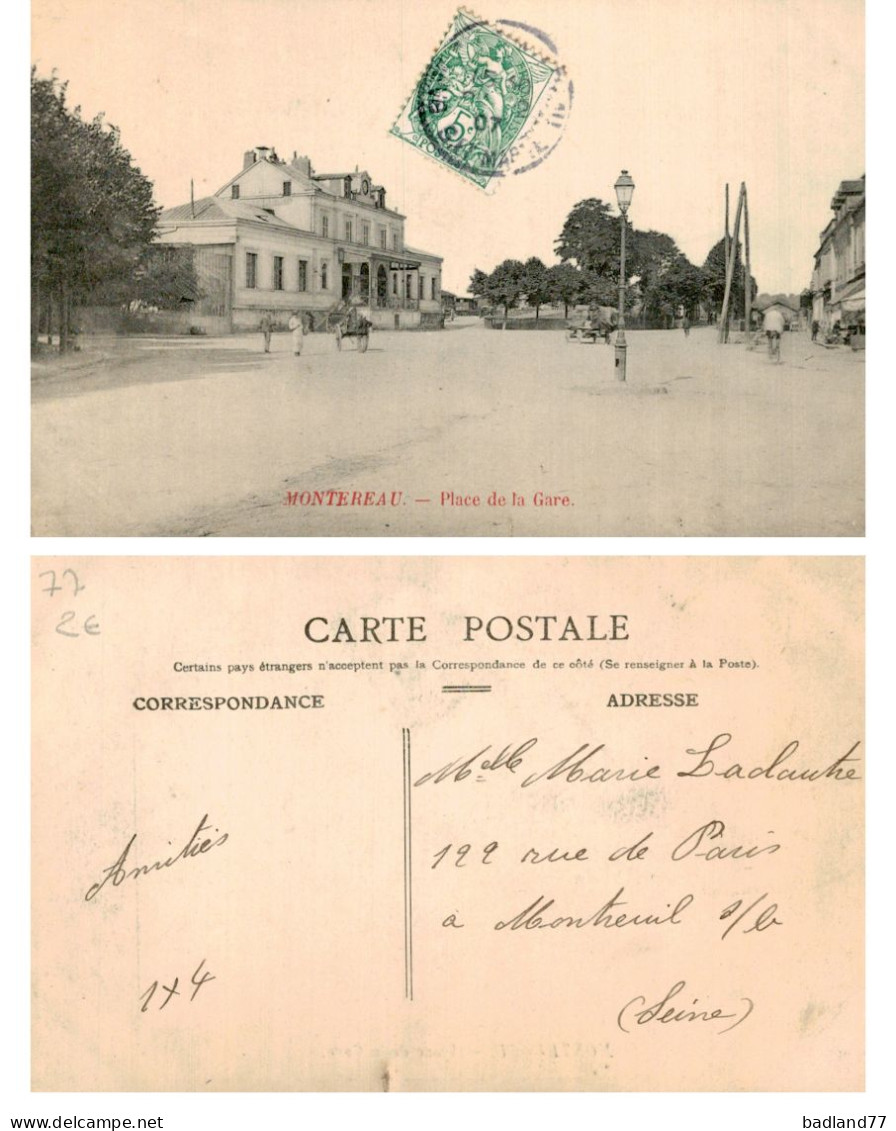 5
07
MONTEREAU. — Place de la Gare.
77
2€
CARTE POSTALE
Certains pays étrangers n'acceptent pas la Correspondance de ce côté (Se renseigner à la Poste).
CORRESPONDANCE
ADRESSE
Melle Marie Ladautre
122 rue de Paris
à Montreuil s/b
(Seine)
Amitiés
1x4
delcampe.net
badland77